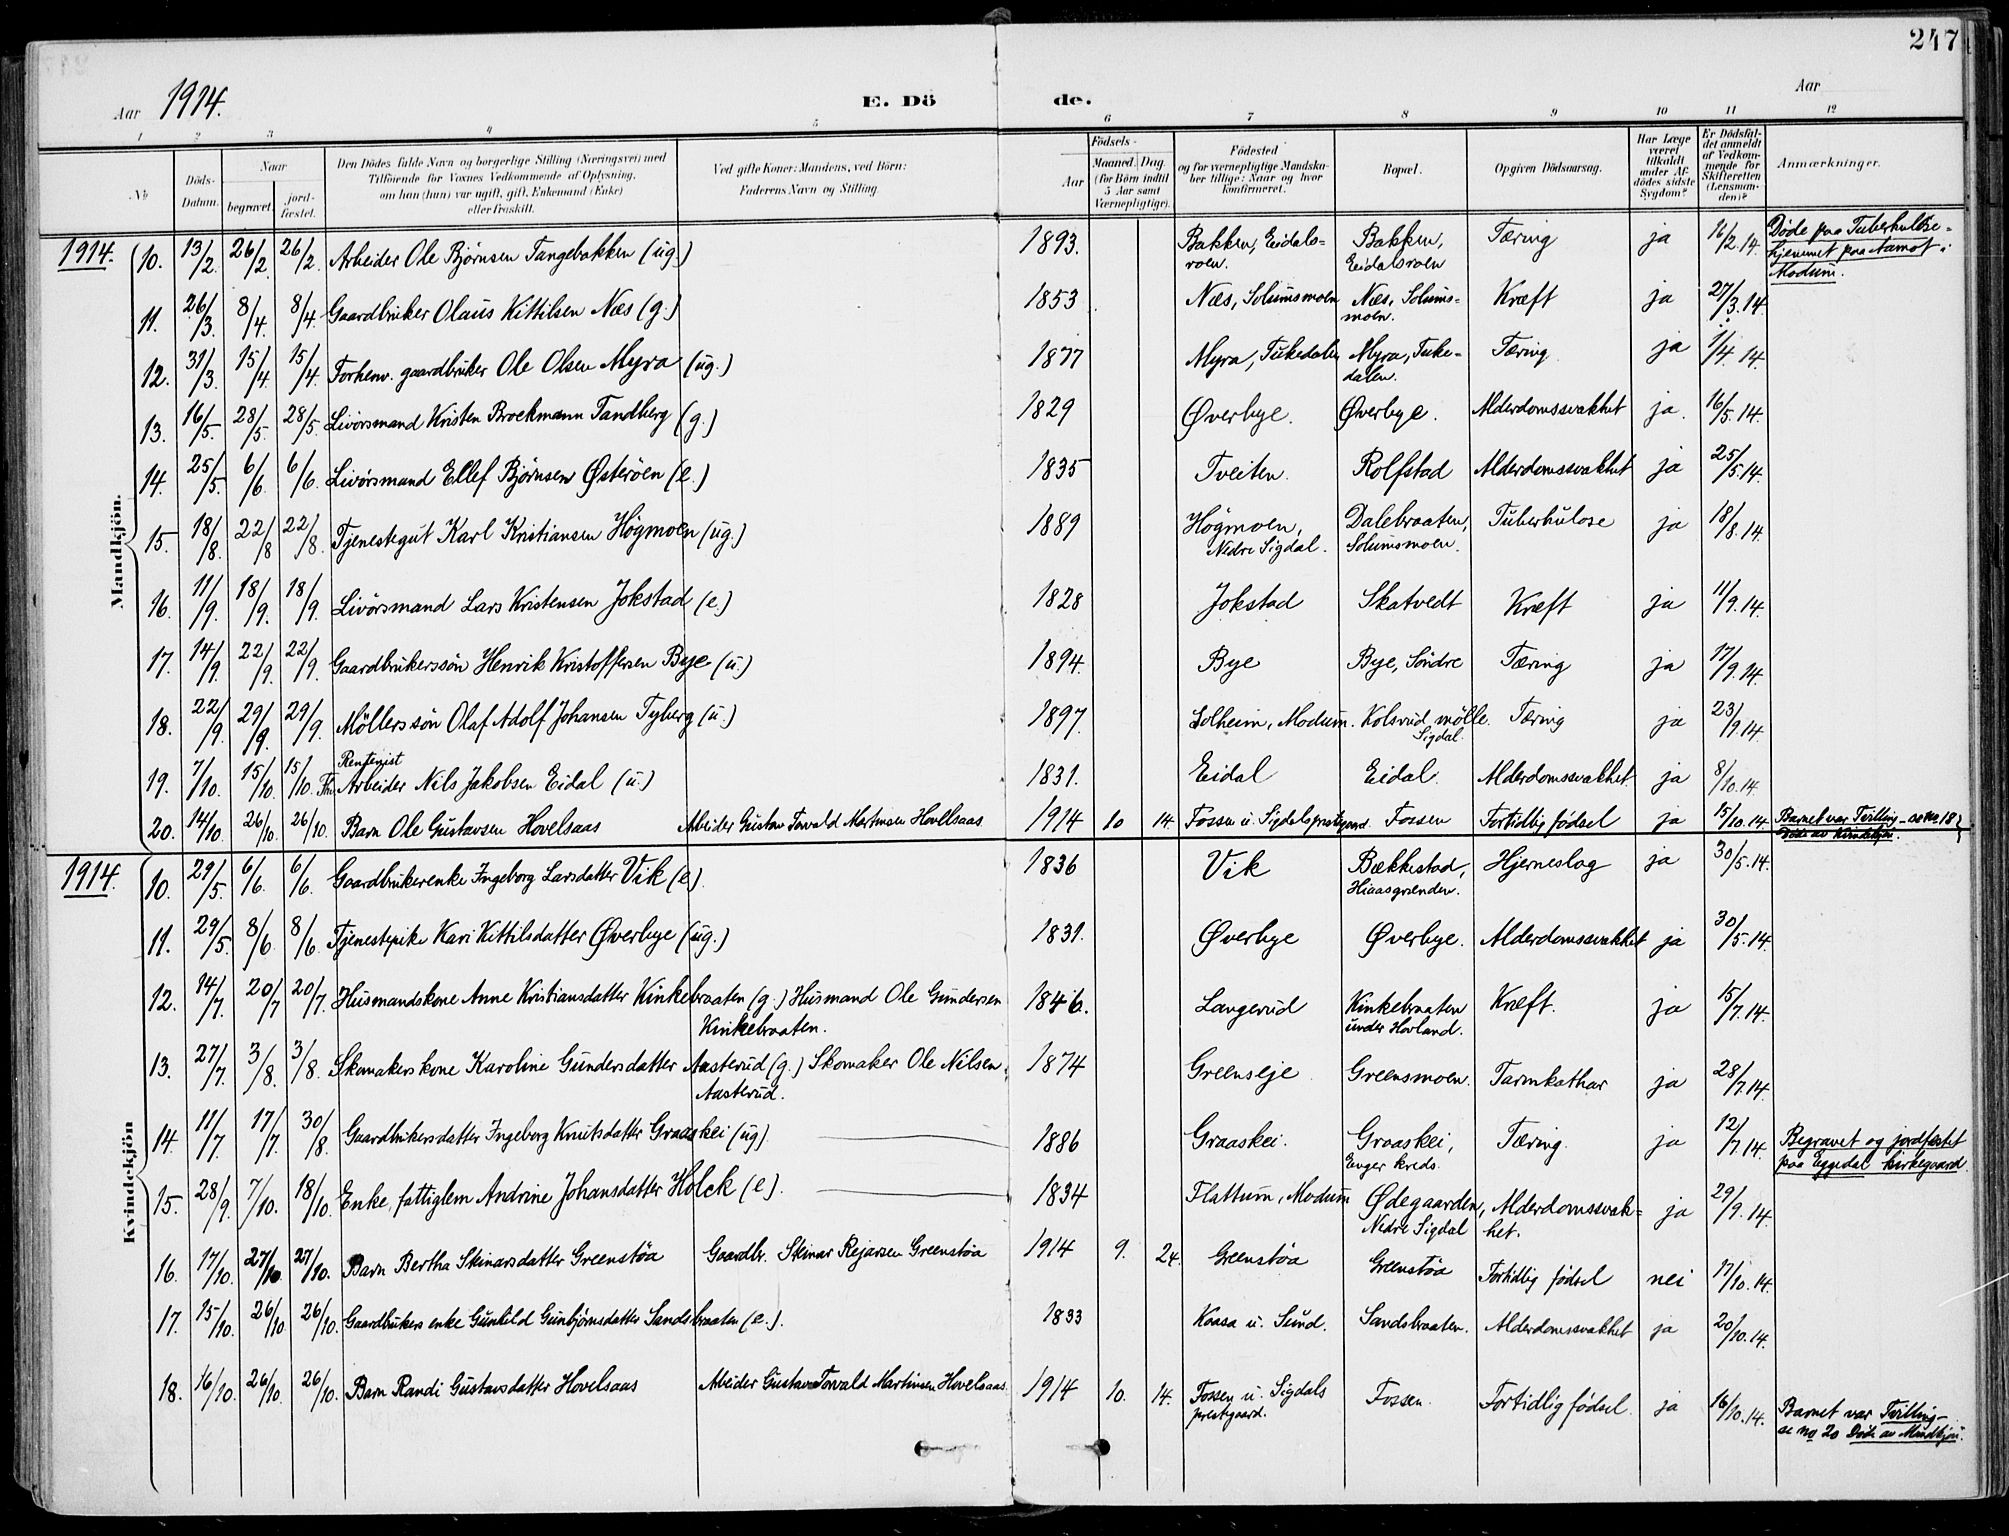 247
Aar 1914. E. Dö de. Aar
1 2 3 4 5 6 7 8 9 10 11 12
No. Döds-Datum. Naar begravet. jord-fæstet. Den Dödes fulde Navn og borgerlige Stilling (Næringsvei) med Tilföiende for Voxnes Vedkommende af Oplysning, om han (hun) var ugift, gift, Enkemand (Enke) eller fraskilt. Ved gifte Koner: Mandens, ved Börn: Faderens Navn og Stilling. Födsels- Aar Maaned. Dag. (for Börn indtil 5 Aar samt Værnepligtige). Födested og for værnepligtige Mandska-ber tillige: Naar og hvor konfirmeret. Bopæl. Opgiven Dödsaarsag. Har Læge været tilkaldt under Af-dödes sidste Sygdom? Er Dödsfal-det anmeldt af Vedkom-mende for Skifteretten (Lensman-den)? Anmærkninger.
Mandkjön.
1914. 10. 13/2. 26/2 26/2. Arbeider Ole Bjørnsen Tangebakken (ug.) 1893. Bakken, Eidals-roen. Bakken, Eidalsroen Tæring ja 16/2.14. Døde paa Tuberkulose-hjemmet paa Aamot i Modum.
11. 26/3. 8/4. 8/4. Gaardbruker Olaus Kittilsen Næs (g.) 1853 Næs, Solumsmoen Næs, Solums-moen. Kræft ja 27/3.14.
12. 31/3. 15/4. 15/4. Forhenv. gaardbruker Ole Olsen Myra (ug.) 1877 Myra, Tukedalen Myra, Tuke-dalen. Tæring. ja 1/4.14.
13. 16/5. 28/5. 28/5. Livörsmand Kristen Brockmann Tandberg (g.) 1829 Øverbye. Øverbye. Alderdomssvakhet ja. 16/5.14.
14. 25/5. 6/6. 6/6. Livörsmand Ellef Bjørnsen Østeröen (e.) 1835 Tveiten. Rolfstad Alderdomssvakhet ja 25/5.14.
15. 18/8. 22/8 22/8. Tjenestegut Karl Kristiansen Högmoen (ug.) 1889 Högmoen, Nedre Sigdal. Dalebraaten, Solumsmoen. Tuberkulose ja 18/8.14.
16. 11/9. 18/9. 18/9. Livörsmand Lars Kristensen Jokstad (e.) 1828 Jokstad Skatvedt Kræft ja 11/9.14.
17. 14/9. 22/9. 22/9. Gaardbrukerssön Henrik Kristoffersen Bye (u.) 1894. Bye Bye, Söndre Tæring ja 17/9.14.
18. 22/9. 29/9. 29/9. Möllerssön Olaf Adolf Johansen Tyberg (u.) 1897. Solheim, Modum. Kolsrud mölle. Sigdal. Tæring ja 23/9.14.
19. 7/10. 15/10. 15/10. Rentenist Fhv. Arbeider Nils Jakobsen Eidal (u.) 1831. Eidal Eidal. Alderdomssvakhet. ja 8/10.14.
20. 14/10. 26/10. 26/10. Barn Ole Gustavsen Hovelsaas Arbeider Gustav Torvald Martinsen Hovelsaas. 1914 10 14. Fossen u. Sigdalsprestgaard. Fossen Fortidlig födsel ja 15/10.14. Barnet var Tvilling – se no 18 Døde av Kvindekjön.
Kvindekjön
1914. 10. 29/5. 6/6. 6/6. Gaardbrukerenke Ingeborg Larsdatter Vik (e). 1836 Vik Bækkestad, Hiaasgrænden. Hjerneslag ja 30/5.14.
11. 29/5. 8/6. 8/6. Tjenestepike Kari Kittilsdatter Øverbye (ug.) 1831. Øverbye Øverbye. Alderdomssvakhet ja 30/5.14.
12. 14/7. 20/7 20/7. Husmandskone Anne Kristiansdatter Kinkebraaten (g.) Husmand Ole Gundersen Kinkebraaten. 1846. Langerud Kinkebraaten under Hovland. Kræft. ja 15/7.14.
13. 27/7. 3/8. 3/8. Skomakerskone Karoline Gundersdatter Aasterud (g.) Skomaker Ole Nilsen Aasterud. 1874 Greenseje Greensmoen. Tarmkathar ja 28/7.14.
14. 11/7. 17/7. 30/8. Gaardbrukersdatter Ingeborg Knutsdatter Graaskei (ug). 1886 Graaskei. Graaskei, Enger kreds. Tæring. ja 12/7.14. Begravet og jordfæstet paa Eggedal kirkegaard.
15. 28/9. 7/10. 18/10. Enke, fattiglem Andrine Johansdatter Holck (e). 1834 Flattum, Modum Ødegaarden, Nedre Sigdal Alderdomssvak-het. ja 29/9.14.
16. 17/10. 27/10. 27/10. Barn Bertha Steinarsdatter Greenstøa Gaardbr. Steinar Rejarsen Greenstøa 1914 9. 24. Greenstøa Greenstøa Fortidlig födsel nei 17/10.14.
17. 15/10. 26/10 26/10. Gaardbrukers enke Gunhild Gunbjørnsdatter Sandsbraaten (e.). 1833 Kaasa u. Sund. Sandsbraaten. Alderdomssvakhet ja 20/10.14.
18. 16/10. 26/10. 26/10. Barn Randi Gustavsdatter Hovelsaas Arbeider Gustav Torvald Martinsen Hovelsaas. 1914 10. 14. Fossen u. Sigdals prestegaard. Fossen. Fortidlig födsel. ja 16/10.14. Barnet var Tvilling – se no 20 Døde av Mandkjön.